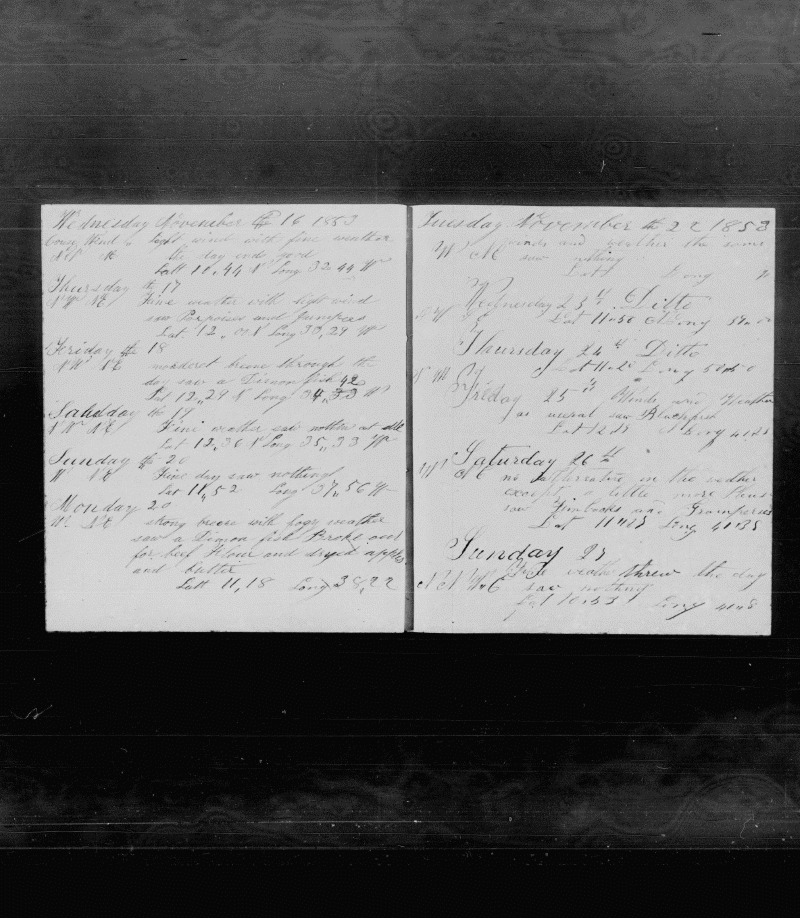 Wednesday November th 16 1853
Cours Wind light wind with fine weather
NW NE the day ends good
Latt 11,,44 N Long 32,44 W
Thursday th 17
NW NE Fine weather with light wind
saw Porpoises and
Lat. 12 N Long 30,29 W
Friday th 18
NW NE breese through the
day saw a fish 42
Lat 12,,29 N Long 34,,33 W
th 19
NW NE Fine weather saw nothing at all
Lat 12,36 N Long 35,,33 W
Sunday th 20
W NE Fine day saw nothing
Lat 11,,52 Long 37,,56 W
Monday 20
W. NE strong breese with fogy weather
saw a fish Broke out
for beef Flour and dryed apples
and butter
Latt 11,18 Long 38,22
Tuesday November th 22 1853
W NE winds and weather the same
saw nothing
Lat Long
Wednesday 23 Ditto
Lat Long
Thursday 24 th Ditto
Lat Long
Friday 25 th Winds and Weather
as usural saw Blackfish
Lat Long 41
Saturday 26 th
W NE no in the wether
except a little more
saw Finbacks and Grampuses
Lat 11 Long 41 35
Sunday 27
Fine weath threw the day
saw nothing
Lat 10 53 Long 41